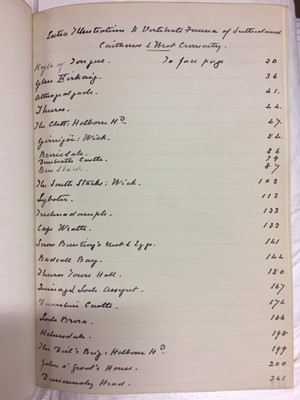 Extra Illustrations to Vertebrate Fauna of Sutherland
Caithness & West Cromarty.
Kyle of Tongue. To face page 30
Glen Kirkaig. 36
Altnagalgach. 41
Thurso. 44
The Clett: Holborn Hd. 47
Girnigoe: Wick. 52
Berriedale. 56
Dunbeath Castle. 79
Ben 87
The South Stacks: Wick. 102
Lybster. 113
Inchnadamph. 133
Cape Wrath. 133
Snow Bunting's Nest & Eggs. 141
Badcall Bay. 144
Thurso Town Hall. 150
Quinag & Loch Assynt. 167
Dunrobin Castle. 172
Loch Brora. 186
Helmsdale. 198
The Deil's Brig: Holborn Hd. 199
John o' Groat's House. 200
Duncansby Head. 241